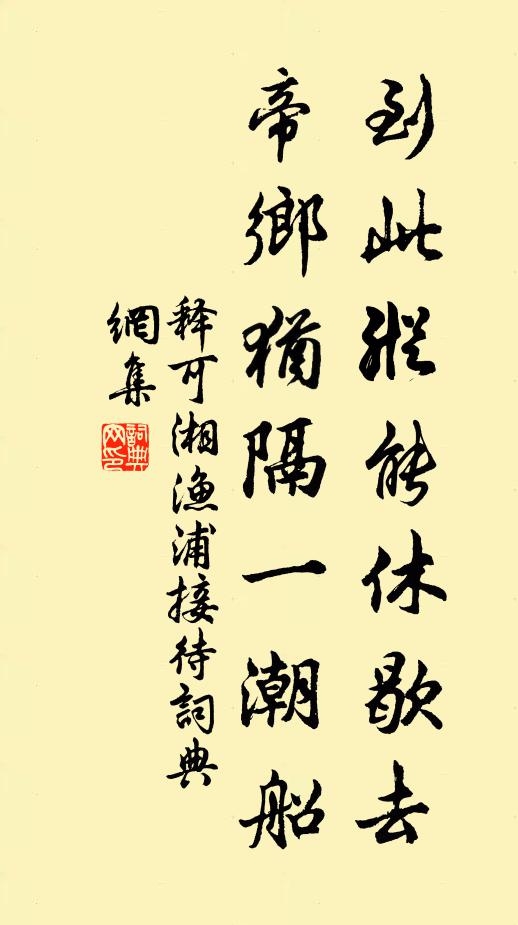 到此縱能休歇去
帝鄉猶隔一潮船
释可湘漁浦接待詞典
網集
詞典網印